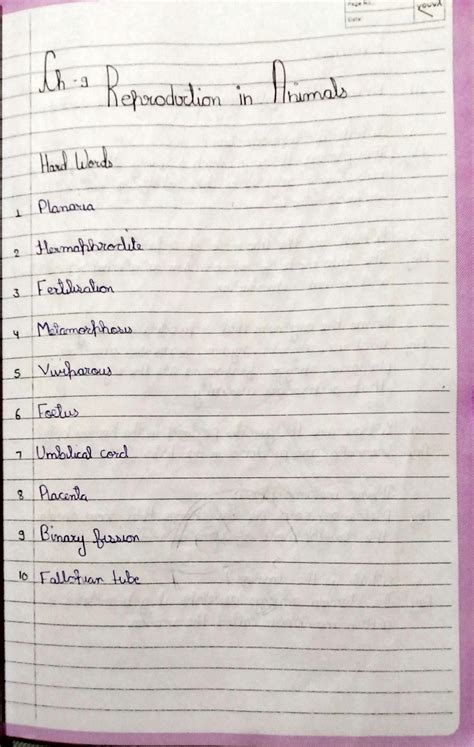 Page No.
Date
Ch-9 Reproduction in Animals
Hard Words
1 Planaria
2 Hermaphrodite
3 Fertilisation
4 Metamorphosis
5 Viviparous
6 Foetus
7 Umbilical cord
8 Placenta
9 Binary fission
10 Fallopian tube